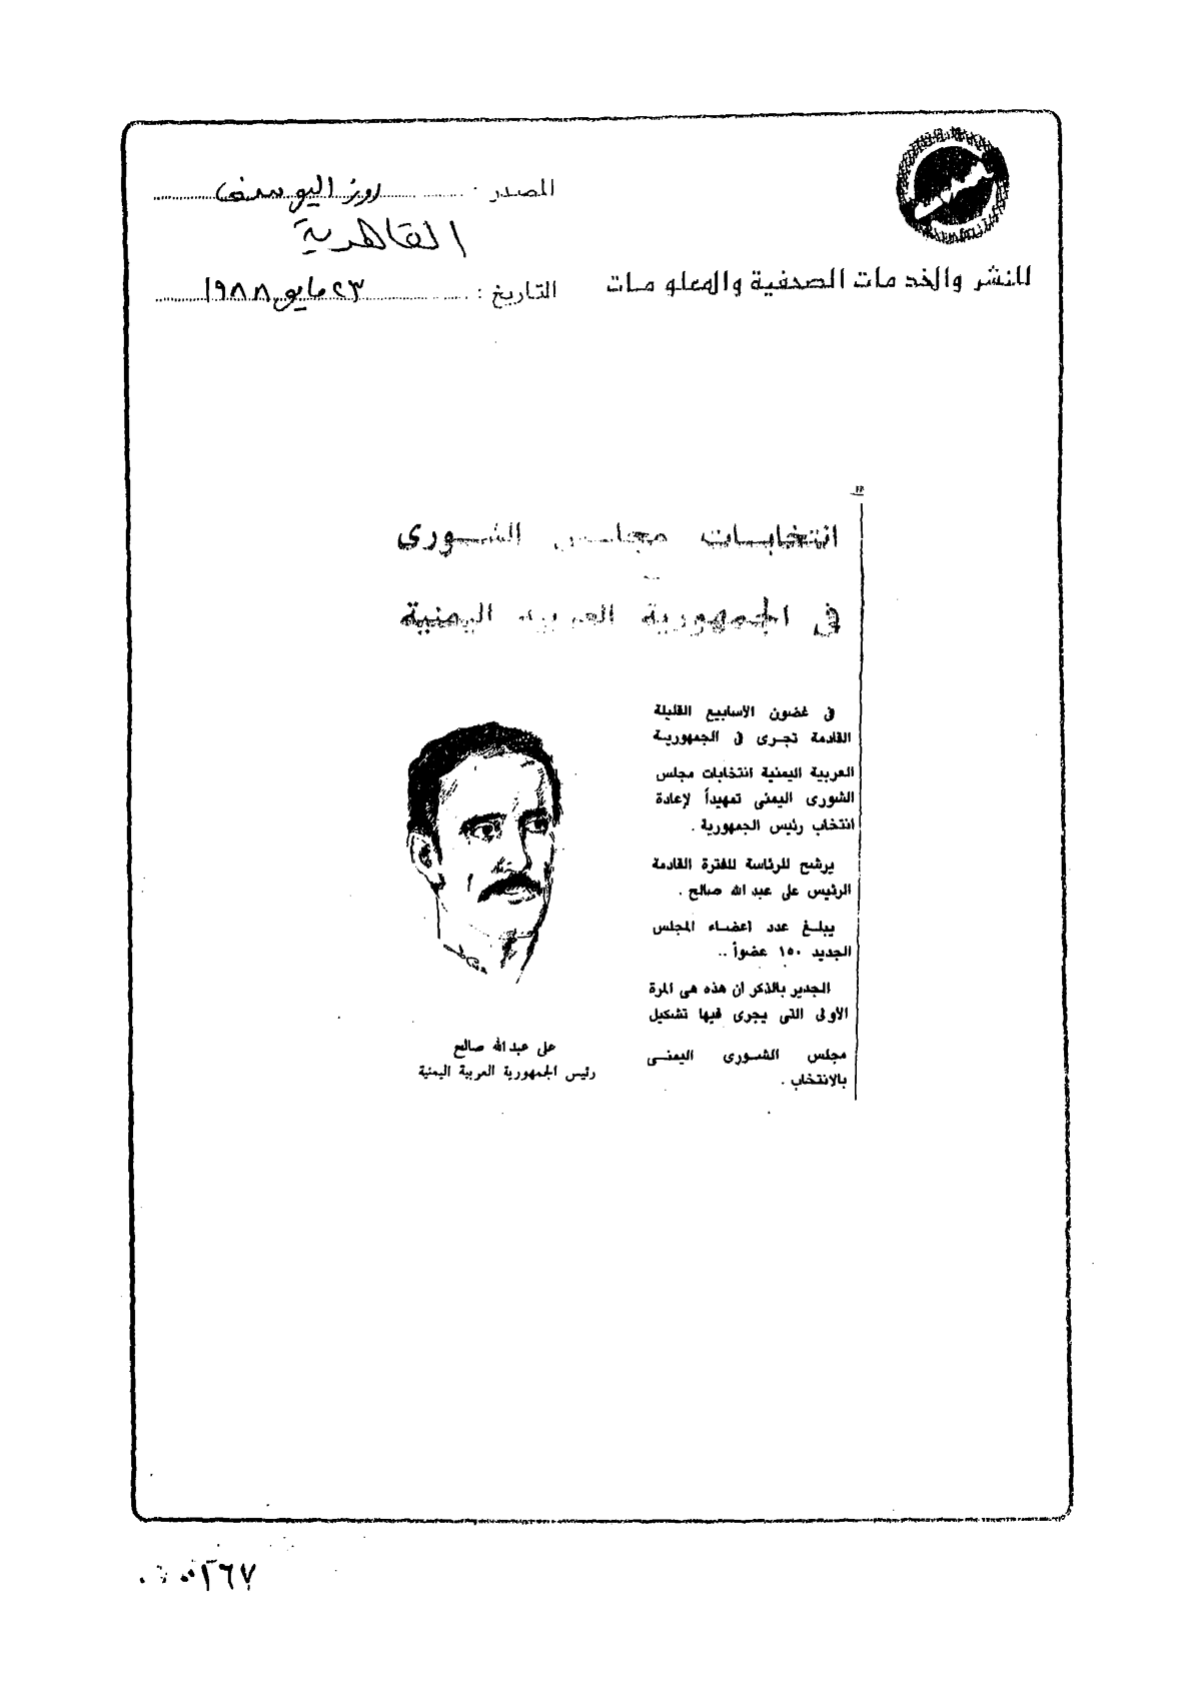 المصدر : روز اليوسف
القاهرية
للنشر والخدمات الصحفية والمعلومات
التاريخ : ٢٣ مايو ١٩٨٨
انتخابات مجلس الشورى
فى الجمهورية العربية اليمنية
فى غضون الأسابيع القليلة
القادمة تجرى فى الجمهورية
العربية اليمنية انتخابات مجلس
الشورى اليمنى تمهيداً لإعادة
انتخاب رئيس الجمهورية .
يرشح للرئاسة للفترة القادمة
الرئيس على عبد الله صالح .
يبلغ عدد اعضاء المجلس
الجديد ١٥٠ عضواً ..
الجدير بالذكر ان هذه هى المرة
الأولى التى يجرى فيها تشكيل
مجلس الشورى اليمنى
بالانتخاب .
على عبد الله صالح
رئيس الجمهورية العربية اليمنية